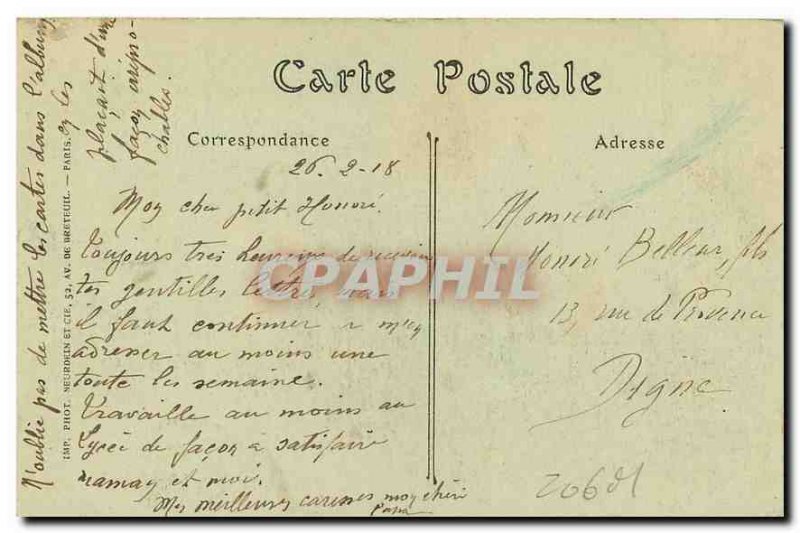 Carte Postale
Correspondance
Adresse
26.2-18
Mon cher petit Honoré.
Toujours très heureux de
tes gentilles lettres, mais
il faut continuer à m'en
adresser au moins une
toute les semaine.
Travaille au moins au
Lycée de façon à satisfaire
maman et moi.
Mes meilleures caresses mon chéri
Papa
N'oublie pas de mettre les cartes dans l'album
en les
plaçant d'une
façon
IMP. PHOT. NEURDEIN ET CIE, 52, AV. DE BRETEUIL. — PARIS.
Monsieur
Honoré fils
13, rue de Provence
Digne
CPAPHIL